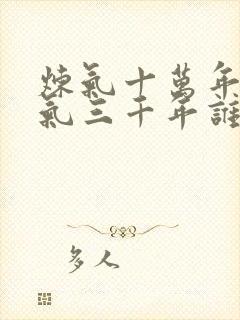 煉氣十萬年
氣三千年誰
多人